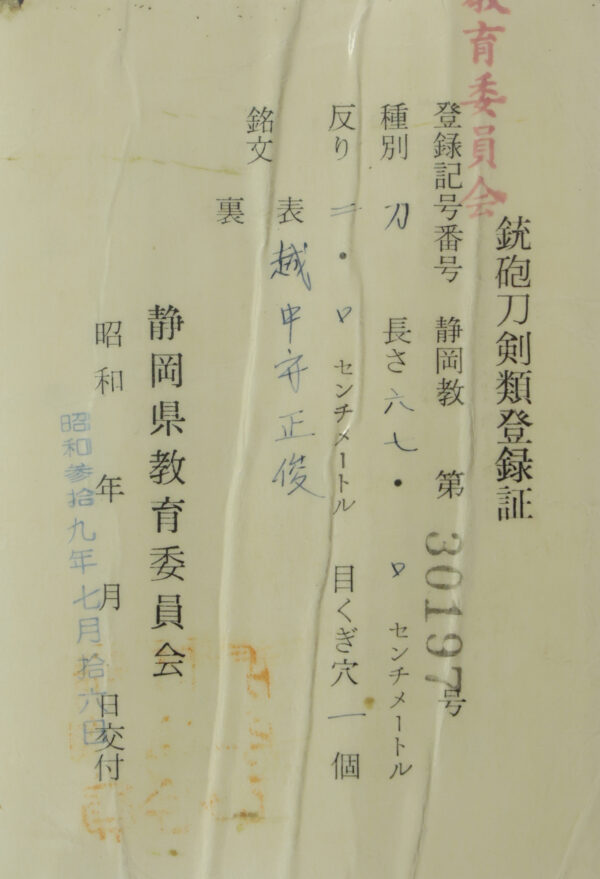 教育委員会
銃砲刀剣類登録証
登録記号番号 静岡教 第30197号
種別 刀 長さ 六七・〇 センチメートル
反り 二・〇 センチメートル 目くぎ穴 一 個
銘文 表 越中守正俊
裏
静岡県教育委員会
昭和 年 月 日交付
昭和参拾九年七月拾六日